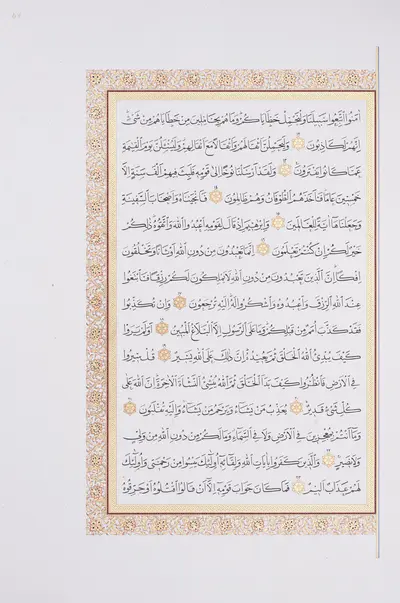 آمَنُوا اتَّبِعُوا سَبِيلَنَا وَلْنَحْمِلْ خَطَايَاكُمْ وَمَا هُمْ بِحَامِلِينَ مِنْ خَطَايَاهُمْ مِنْ شَيْءٍ
إِنَّهُمْ لَكَاذِبُونَ ۝ وَلَيَحْمِلُنَّ أَثْقَالَهُمْ وَأَثْقَالًا مَعَ أَثْقَالِهِمْ وَلَيُسْئَلُنَّ يَوْمَ الْقِيٰمَةِ
عَمَّا كَانُوا يَفْتَرُونَ ۝ وَلَقَدْ أَرْسَلْنَا نُوحًا إِلَى قَوْمِهِ فَلَبِثَ فِيهِمْ أَلْفَ سَنَةٍ إِلَّا
خَمْسِينَ عَامًا فَأَخَذَهُمُ الطُّوفَانُ وَهُمْ ظَالِمُونَ ۝ فَأَنْجَيْنَاهُ وَأَصْحَابَ السَّفِينَةِ
وَجَعَلْنَاهَا آيَةً لِلْعَالَمِينَ ۝ وَإِبْرٰهِيمَ إِذْ قَالَ لِقَوْمِهِ اعْبُدُوا اللّٰهَ وَاتَّقُوهُ ذٰلِكُمْ
خَيْرٌ لَكُمْ إِنْ كُنْتُمْ تَعْلَمُونَ ۝ إِنَّمَا تَعْبُدُونَ مِنْ دُونِ اللّٰهِ أَوْثَانًا وَتَخْلُقُونَ
إِفْكًا إِنَّ الَّذِينَ تَعْبُدُونَ مِنْ دُونِ اللّٰهِ لَا يَمْلِكُونَ لَكُمْ رِزْقًا فَابْتَغُوا
عِنْدَ اللّٰهِ الرِّزْقَ وَاعْبُدُوهُ وَاشْكُرُوا لَهُ إِلَيْهِ تُرْجَعُونَ ۝ وَإِنْ تُكَذِّبُوا
فَقَدْ كَذَّبَ أُمَمٌ مِنْ قَبْلِكُمْ وَمَا عَلَى الرَّسُولِ إِلَّا الْبَلَاغُ الْمُبِينُ ۝ أَوَلَمْ يَرَوْا
كَيْفَ يُبْدِئُ اللّٰهُ الْخَلْقَ ثُمَّ يُعِيدُهُ إِنَّ ذٰلِكَ عَلَى اللّٰهِ يَسِيرٌ ۝ قُلْ سِيرُوا
فِي الْأَرْضِ فَانْظُرُوا كَيْفَ بَدَأَ الْخَلْقَ ثُمَّ اللّٰهُ يُنْشِئُ النَّشْأَةَ الْآخِرَةَ إِنَّ اللّٰهَ عَلَى
كُلِّ شَيْءٍ قَدِيرٌ ۝ يُعَذِّبُ مَنْ يَشَاءُ وَيَرْحَمُ مَنْ يَشَاءُ وَإِلَيْهِ تُقْلَبُونَ ۝
وَمَا أَنْتُمْ بِمُعْجِزِينَ فِي الْأَرْضِ وَلَا فِي السَّمَاءِ وَمَا لَكُمْ مِنْ دُونِ اللّٰهِ مِنْ وَلِيٍّ
وَلَا نَصِيرٍ ۝ وَالَّذِينَ كَفَرُوا بِآيَاتِ اللّٰهِ وَلِقَائِهِ أُولٰئِكَ يَئِسُوا مِنْ رَحْمَتِي وَأُولٰئِكَ
لَهُمْ عَذَابٌ أَلِيمٌ ۝ فَمَا كَانَ جَوَابَ قَوْمِهِ إِلَّا أَنْ قَالُوا اقْتُلُوهُ أَوْ حَرِّقُوهُ